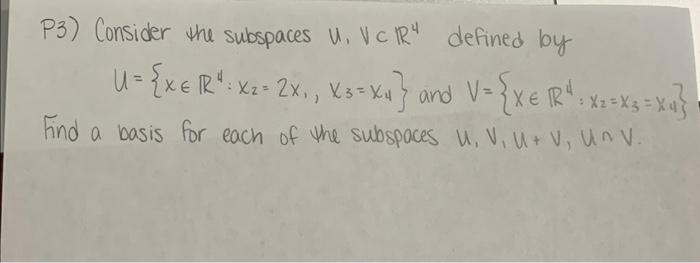 P3) Consider the subspaces U, V ⊂ ℝ⁴ defined by
U = {x ∈ ℝ⁴ : x₂ = 2x₁, x₃ = x₄} and V = {x ∈ ℝ⁴ : x₂ = x₃ = x₄}
Find a basis for each of the subspaces U, V, U + V, U ∩ V.